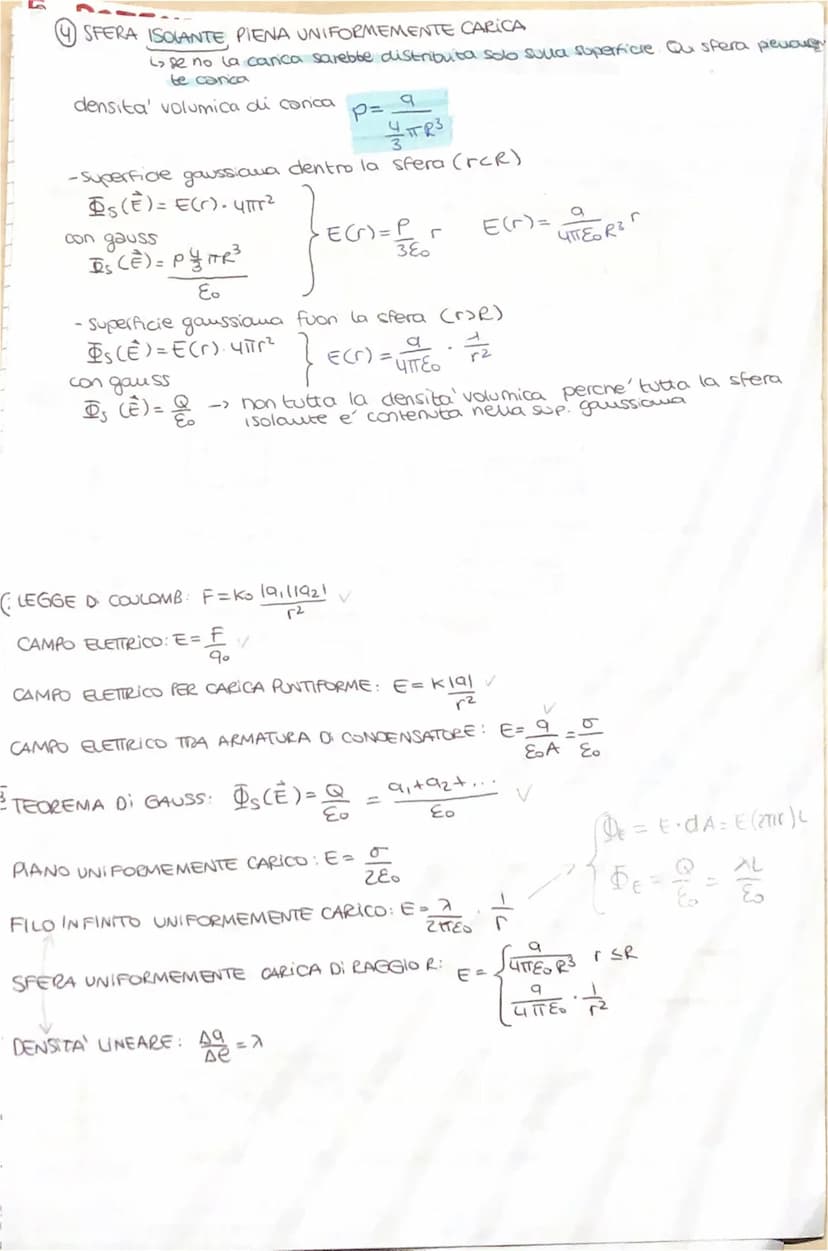 ④ SFERA ISOLANTE PIENA UNIFORMEMENTE CARICA
↳ se no la carica sarebbe distribuita solo sulla superficie
te carica
densita' volumica di carica ρ= q / (4/3 πR³)
- superficie gaussiana dentro la sfera (r<R)
Φs(E⃗)= E(r)· 4πr²
con gauss
Φs(E⃗)= ρ 4/3 πR³ / ε₀
E(r)= ρ/3ε₀ r E(r)= q/4πε₀R³ r
- superficie gaussiana fuori la sfera (r>R)
Φs(E⃗)=E(r)·4πr²
con gauss
Φs (E⃗)= Q/ε₀ → non tutta la densita' volumica perche' tutta la sfera
isolante e' contenuta nella sup. gaussiana
E(r)= q/4πε₀ · 1/r²
LEGGE DI COULOMB: F=K₀ |q₁||q₂|/r² ✓
CAMPO ELETTRICO: E= F/q₀ ✓
CAMPO ELETTRICO PER CARICA PUNTIFORME: E= K|q|/r² ✓
CAMPO ELETTRICO TRA ARMATURA DI CONDENSATORE: E= q/ε₀A = σ/ε₀ ✓
TEOREMA Di GAUSS: Φs(E⃗)= Q/ε₀ = q₁+q₂+.../ε₀ ✓
PIANO UNIFORMEMENTE CARICO: E= σ/2ε₀
FILO INFINITO UNIFORMEMENTE CARICO: E= λ/2πε₀ · 1/r
Φ_E = E·dA= E(2πr)L
Φ_E = Q/ε₀ = λL/ε₀
SFERA UNIFORMEMENTE CARICA Di RAGGIO R: E= { q/4πε₀R³ r≤R
q/4πε₀ · 1/r²
DENSITA' LINEARE: Δq/Δl =λ